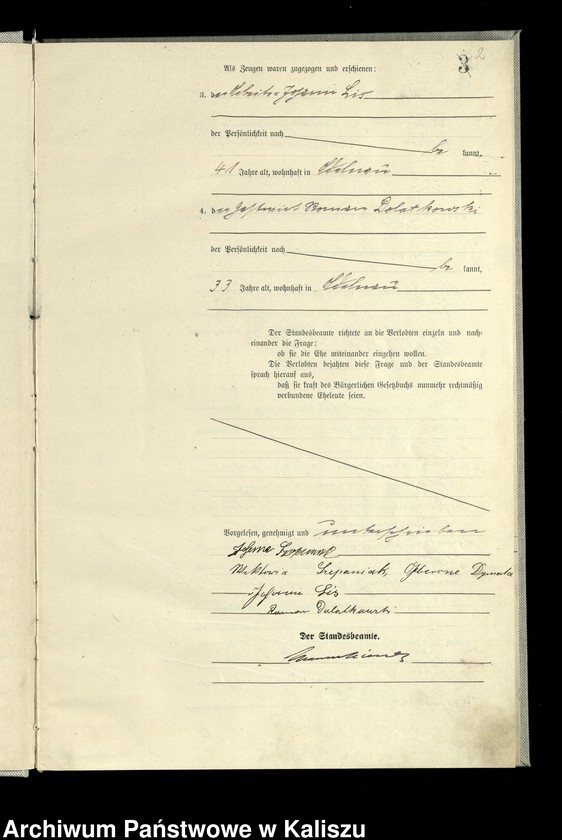 3 2
Als Zeugen waren zugezogen und erschienen:
3. der Arbeiter Johann Lis
der Persönlichkeit nach
be kannt,
41 Jahre alt, wohnhaft in
4. der Gastwirt Roman Dolatkowski
der Persönlichkeit nach
be kannt,
33 Jahre alt, wohnhaft in
Der Standesbeamte richtete an die Verlobten einzeln und nach-
einander die Frage:
ob sie die Ehe miteinander eingehen wollen.
Die Verlobten bejahten diese Frage und der Standesbeamte
sprach hierauf aus,
daß sie kraft des Bürgerlichen Gesetzbuchs nunmehr rechtmäßig
verbundene Eheleute seien.
Vorgelesen, genehmigt und unterschrieben
Wiktorya Szczepaniak, geborene
Johann Lis
Roman Dolatkowski
Der Standesbeamte.
Archiwum Państwowe w Kaliszu